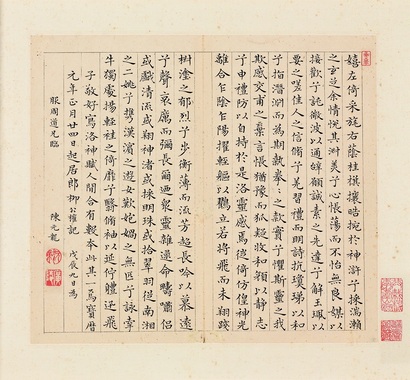 嬉左倚采旄右蔭桂旗攘晧捥於神滸兮採湍瀨
之玄芝余情悅其淑美兮心悵蕩而不怡無良媒以
接歡兮託微波以通辭願誠素之先達兮解玉珮以
要之嗟佳人之信脩兮羌習禮而明詩抗瓊珶以和
兮指潛淵而為期執拳々之款實兮懼斯靈之我
欺感交甫之棄言悵猶豫而狐疑收和顏以靜志
兮申禮防以自持於是洛靈感焉徙倚仿偟神光
離合乍陰乍陽擢輕軀以鶴立若將飛而未翔踐
椒塗之郁烈兮步衡薄而流芳超長唫以慕遠
兮聲哀厲而彌長爾迺衆靈雜遝命疇嘯侶
或戲清流或翔神渚或採明珠或拾翠羽從南湘
之二姚兮攜漢濱之遊女歎匏媧之無匹兮詠牽
牛獨處揚輕袿之倚靡兮翳脩袖以延佇體迅飛
子敬好寫洛神賦人間合有數本此其一焉寶曆
元年正月廿四日起居郎柳公權記 戊辰九日為
服周道兄臨 陳元龍